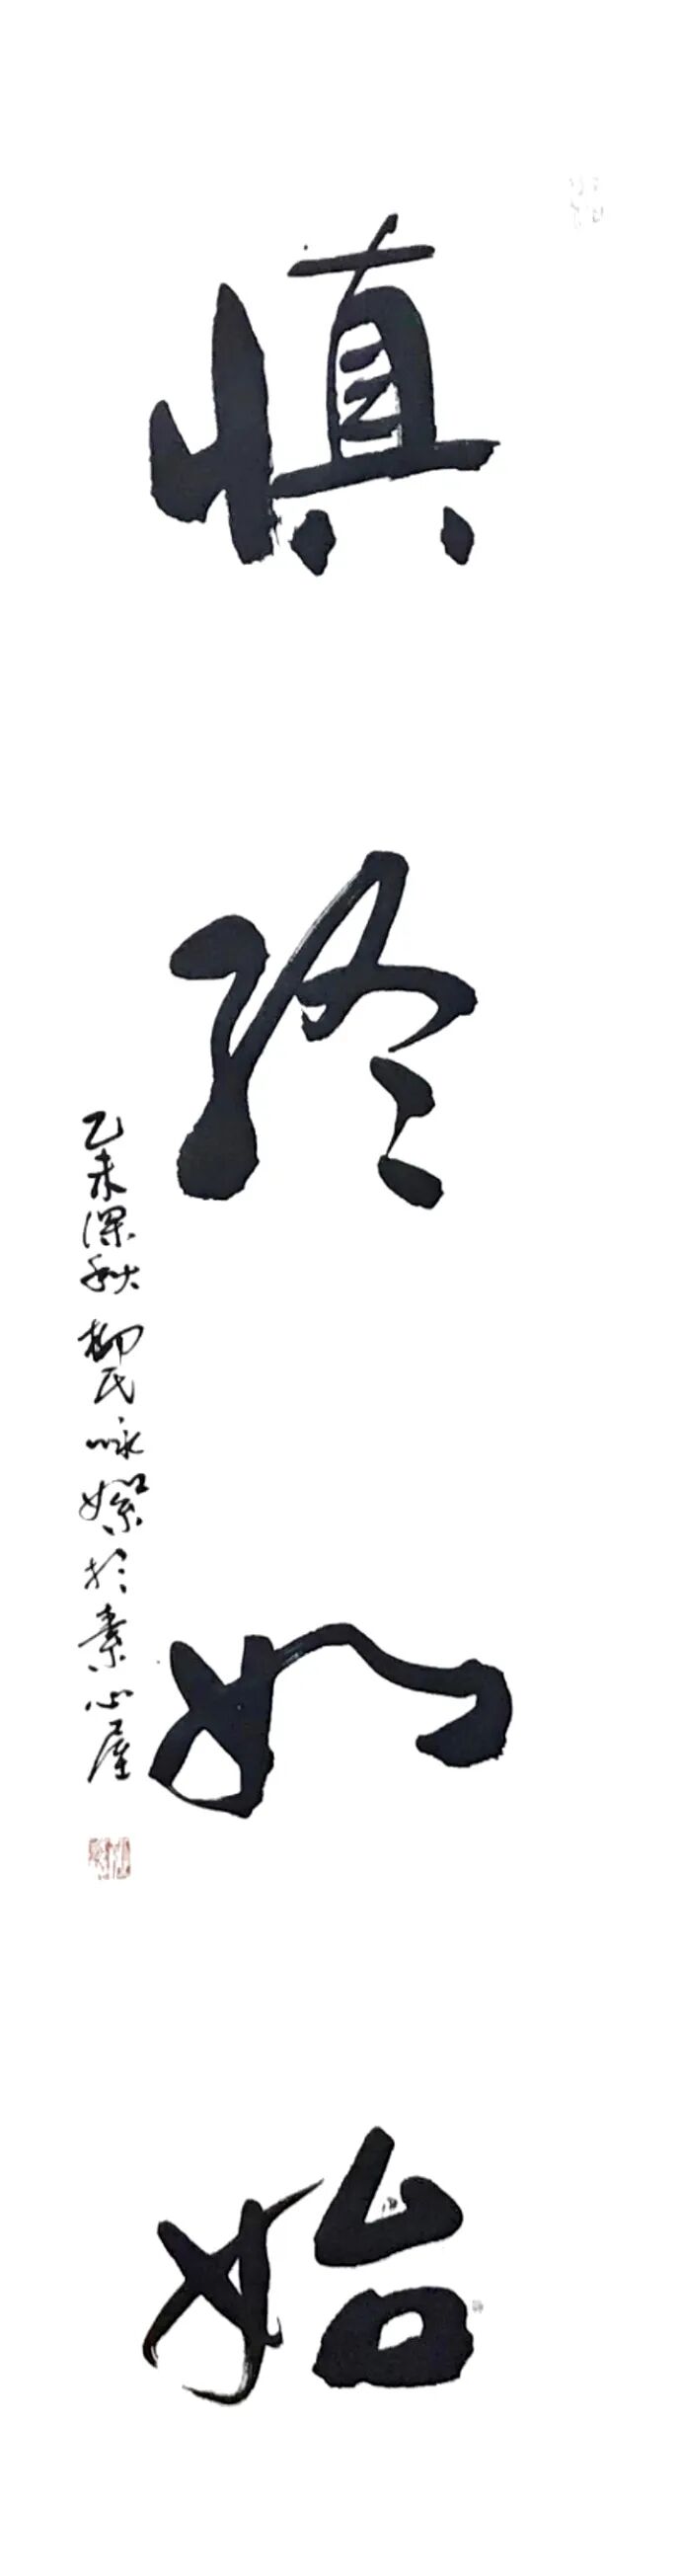 慎终如始
乙未深秋 柳氏咏絮於素心屋